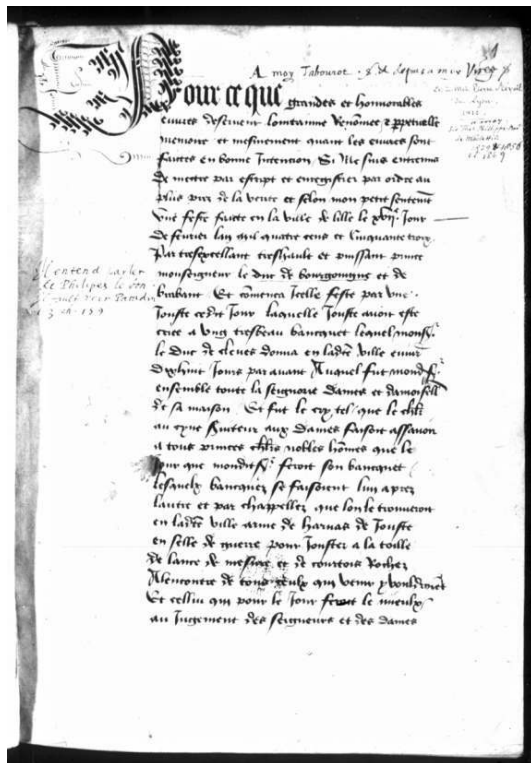 A moy Tabourot
Pour ce que grandes et honnorables
euvres desirent lointainne renommee et perpetuelle
memoire et mesmement quant les euvres sont
faictes en bonne Intencion Si me suis entremis
de mectre par escript et enregistrer par ordre au
plus prez de la verite et selon mon petit sentement
une feste faicte en la ville de lille le xvije Jour
de fevrier lan mil quatre cens et cinquante trois
Par tresexcellant treshault et puissant prince
monseigneur le duc de bourgoingne et de
brabant Et commenca Icelle feste par une
Jouste cedit Jour laquelle Jouste avoit este
criee a ung tresbeau bancquet lequel monsr
le duc de cleves donna en ladite ville environ
dixhuit Jours par avant Auquel fut mondit sr
ensemble toute la seignorie dames et damoiselles
de sa maison Et fut le cry tel que le chlr
au cyne serviteur aux dames faisoit assavoir
a tous princes chlrs nobles hommes que le
Jour que mondit sr feroit son bancquet
lesquelx bancquez se faisoient lun aprez
lautre et par chappellez que lon le trouveroit
en ladite ville arme de harnas de Jouste
en selle de guerre pour Jouster a la toille
de lance de mesure et de courtois Rochez
Alencontre de tous ceulx qui venir y vouldroient
Et cellui qui pour le Jour feroit le mieulx
au Jugement des seigneurs et des dames
entend parler
de Philipes le bon